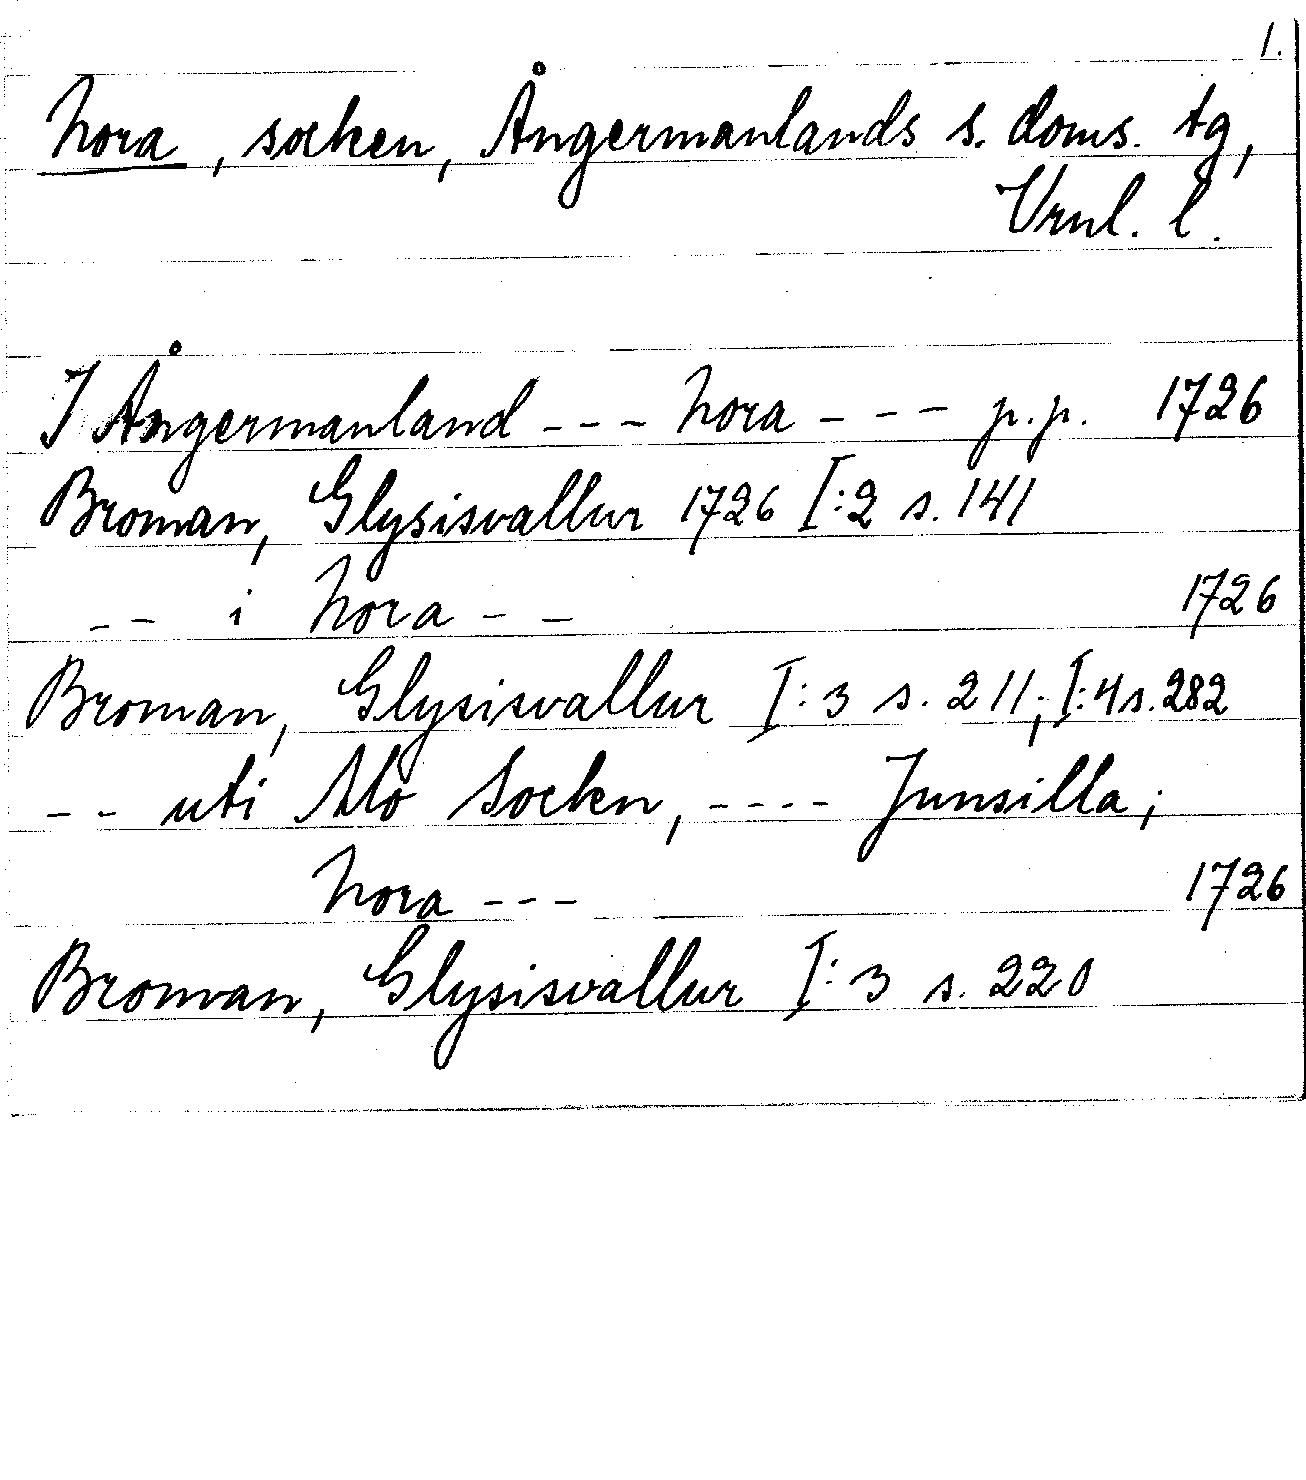 1.
Nora, socken, Ångermanlands s. doms. tg,
Vrnl. l.
I Ångermanland --- Nora --- p.p. 1726
Broman, Glysisvallur 1726 I:2 s. 141
-- i Nora -- 1726
Broman, Glysisvallur I:3 s. 211; I:4 s. 282
-- uti Mo Socken, ---- Junsilla;
Nora --- 1726
Broman, Glysisvallur I:3 s. 220